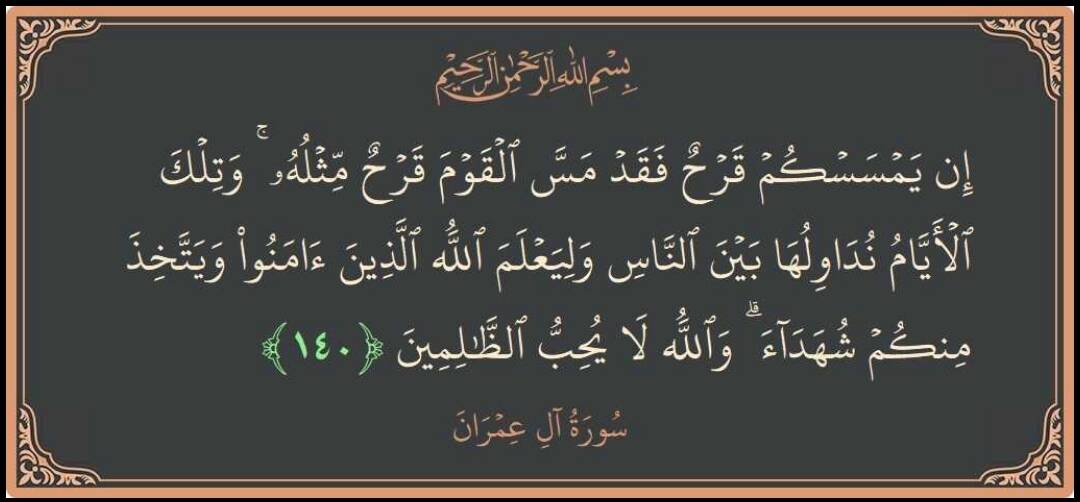 بِسْمِ اللَّهِ الرَّحْمَٰنِ الرَّحِيمِ
إِن يَمْسَسْكُمْ قَرْحٌ فَقَدْ مَسَّ ٱلْقَوْمَ قَرْحٌ مِّثْلُهُۥ ۚ وَتِلْكَ
ٱلْأَيَّامُ نُدَاوِلُهَا بَيْنَ ٱلنَّاسِ وَلِيَعْلَمَ ٱللَّهُ ٱلَّذِينَ ءَامَنُوا۟ وَيَتَّخِذَ
مِنكُمْ شُهَدَآءَ ۗ وَٱللَّهُ لَا يُحِبُّ ٱلظَّـٰلِمِينَ ﴿١٤٠﴾
سُورَةُ آلِ عِمْرَانَ